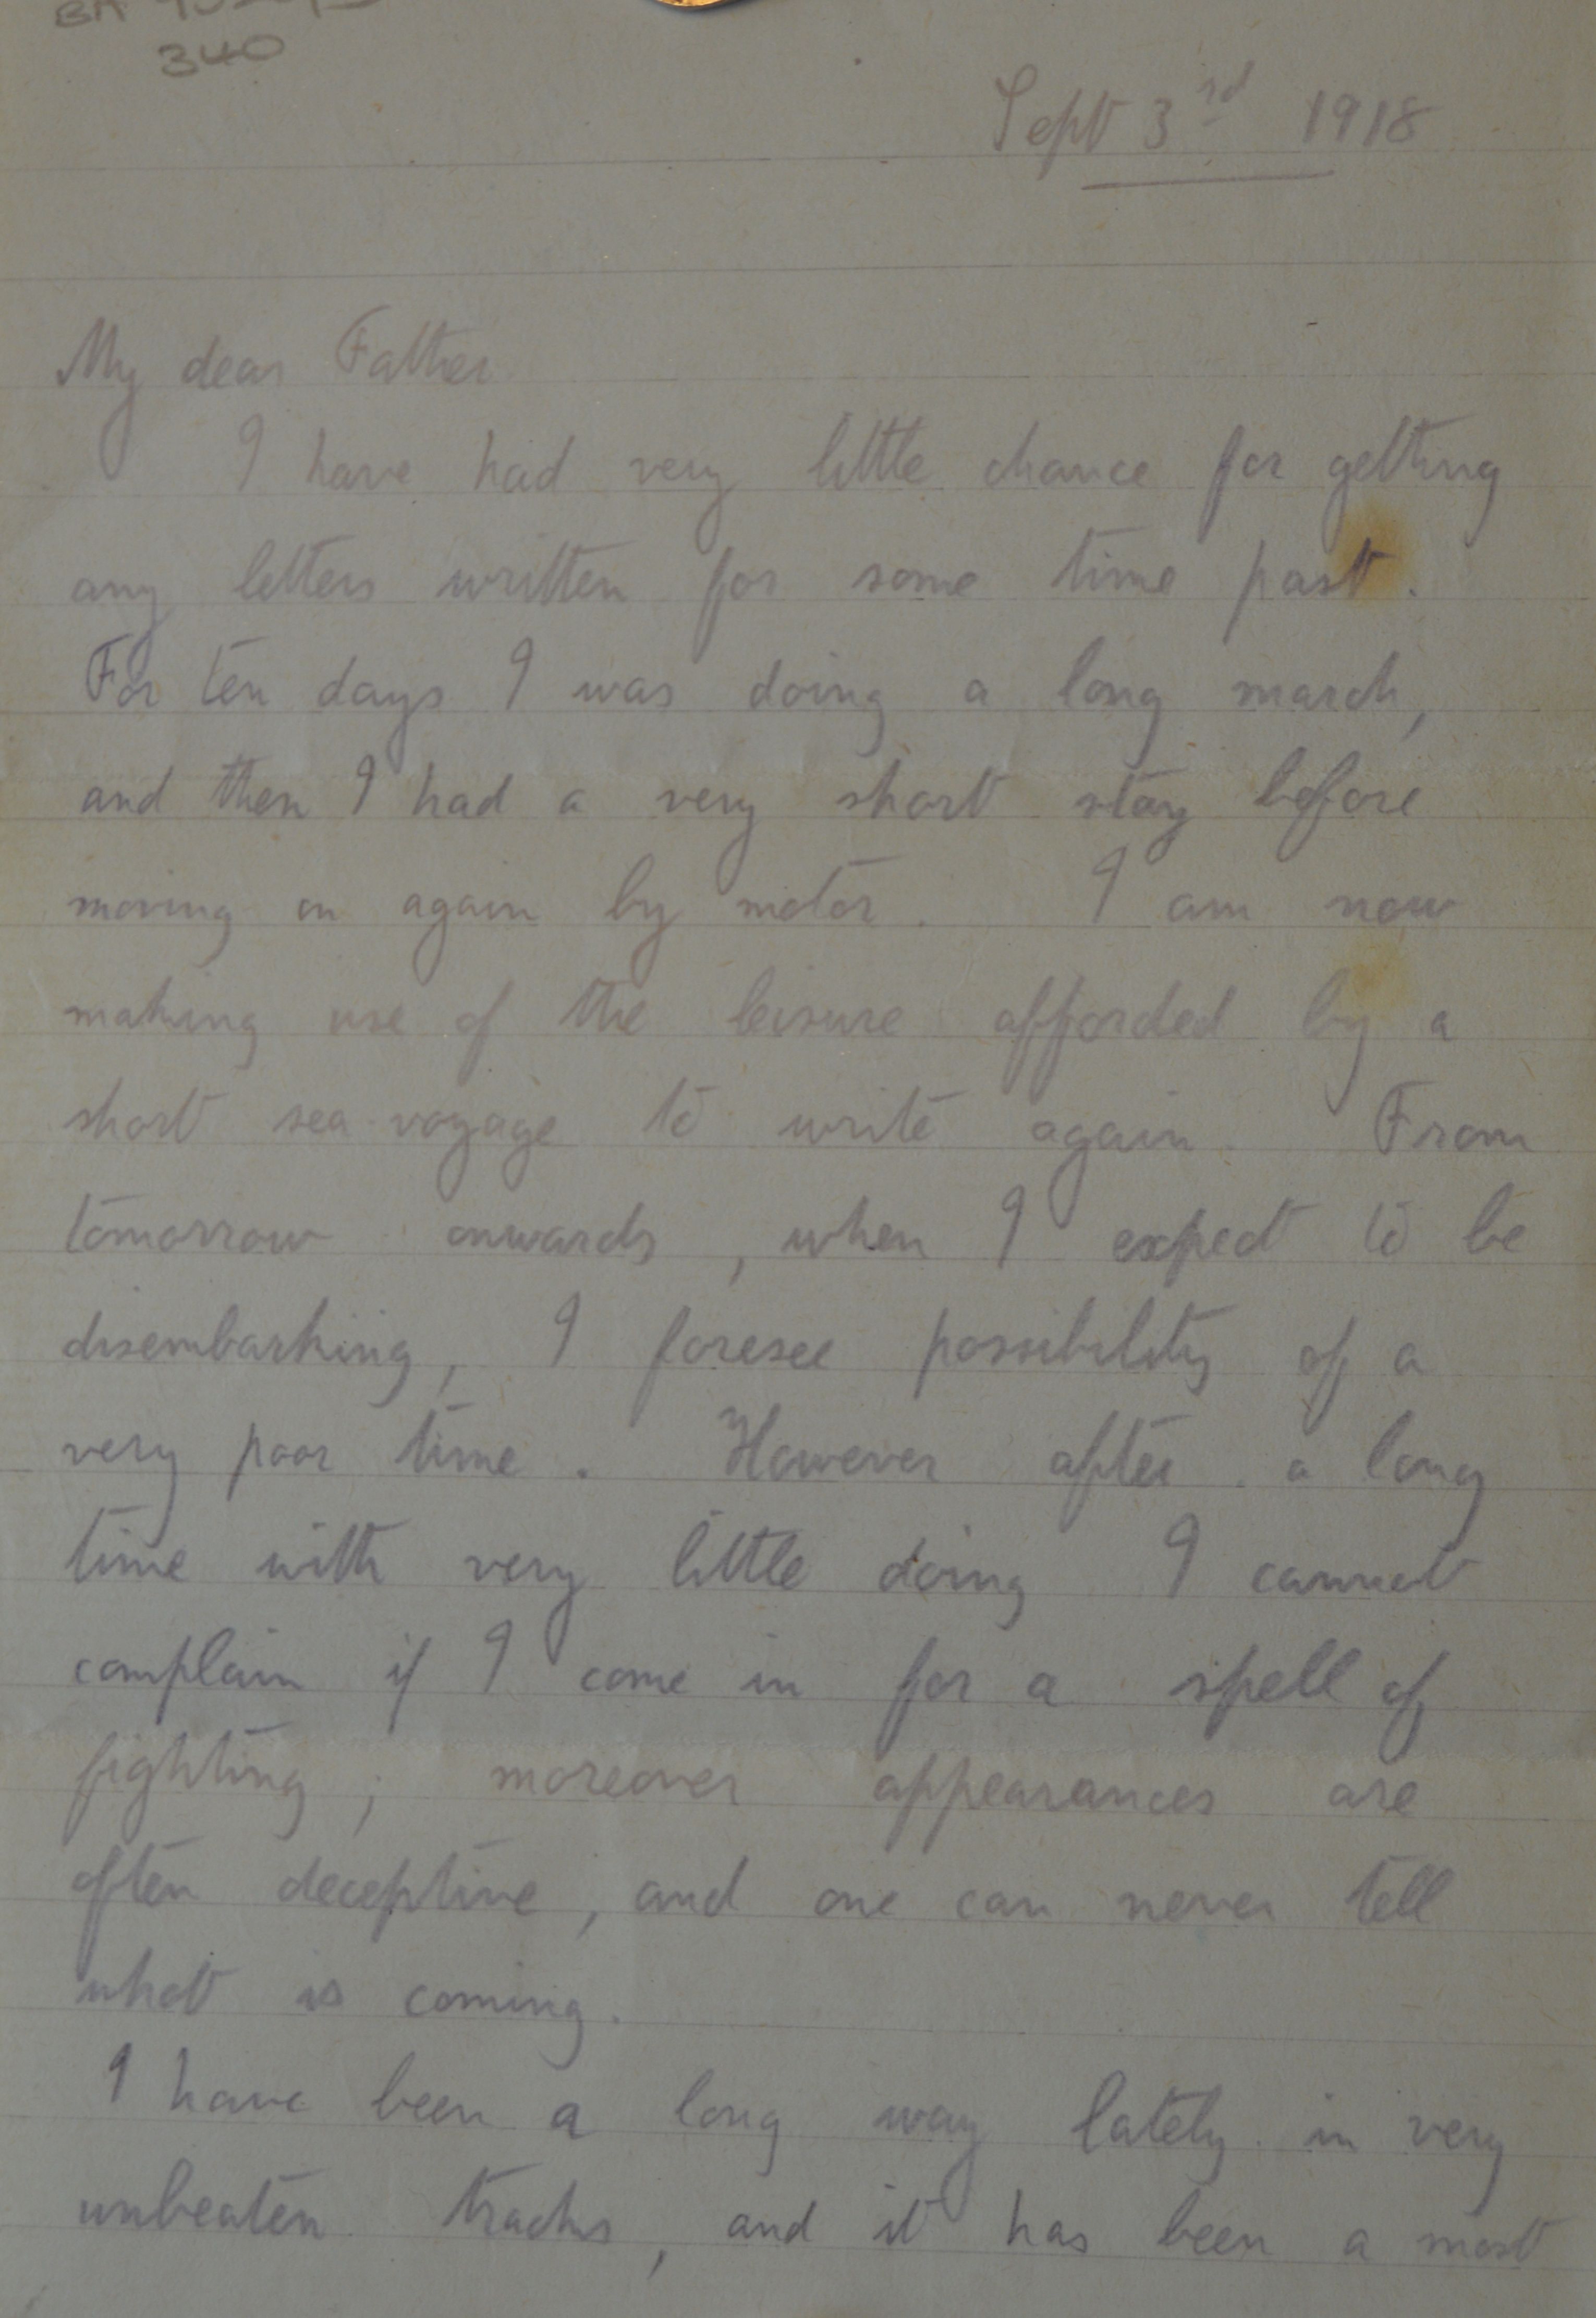 340
Sept 3rd 1918
My dear Father
I have had very little chance for getting
any letters written for some time past.
For ten days I was doing a long march,
and then I had a very short stay before
moving on again by motor. I am now
making use of the leisure afforded by a
short sea voyage to write again. From
tomorrow onwards, when I expect to be
disembarking, I foresee possibility of a
very poor time. However after a long
time with very little doing I cannot
complain if I come in for a spell of
fighting; moreover appearances are
often deceptive, and one can never tell
what is coming.
I have been a long way lately in very
unbeaten tracks, and it has been a most